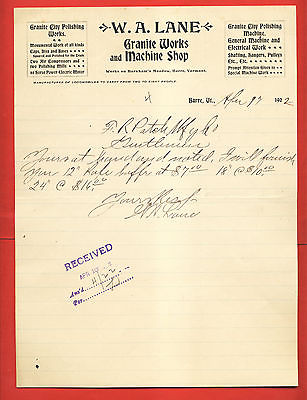 Granite City Polishing Works.
Monumental Work of all kinds
Caps, Dies and Bases
Drums and Columns
Two Air Compressors and
two Polishing Mills
50 Horse Power Electric Motor
W. A. LANE
Granite Works
and Machine Shop
Works on Burnham's Meadow, Barre, Vermont.
Granite City Polishing Machine,
General Machine and
Electrical Work
Shafting, Hangers, Pulleys
Etc., Etc.
Prompt Attention Given to
Special Machine Work
MANUFACTURERS OF LOCOMOBILES TO CARRY FROM TWO TO EIGHT PEOPLE.
Barre, Vt., Apr 17 1902
F. R. Patch Mfg Co
Gentlemen
Yours at hand and noted. I will furnish
you 12" buffer at $7.00 18" @ $10.00
24" @ $16.00
Yours Resp
W A Lane
RECEIVED
APR
Ans'd
Per